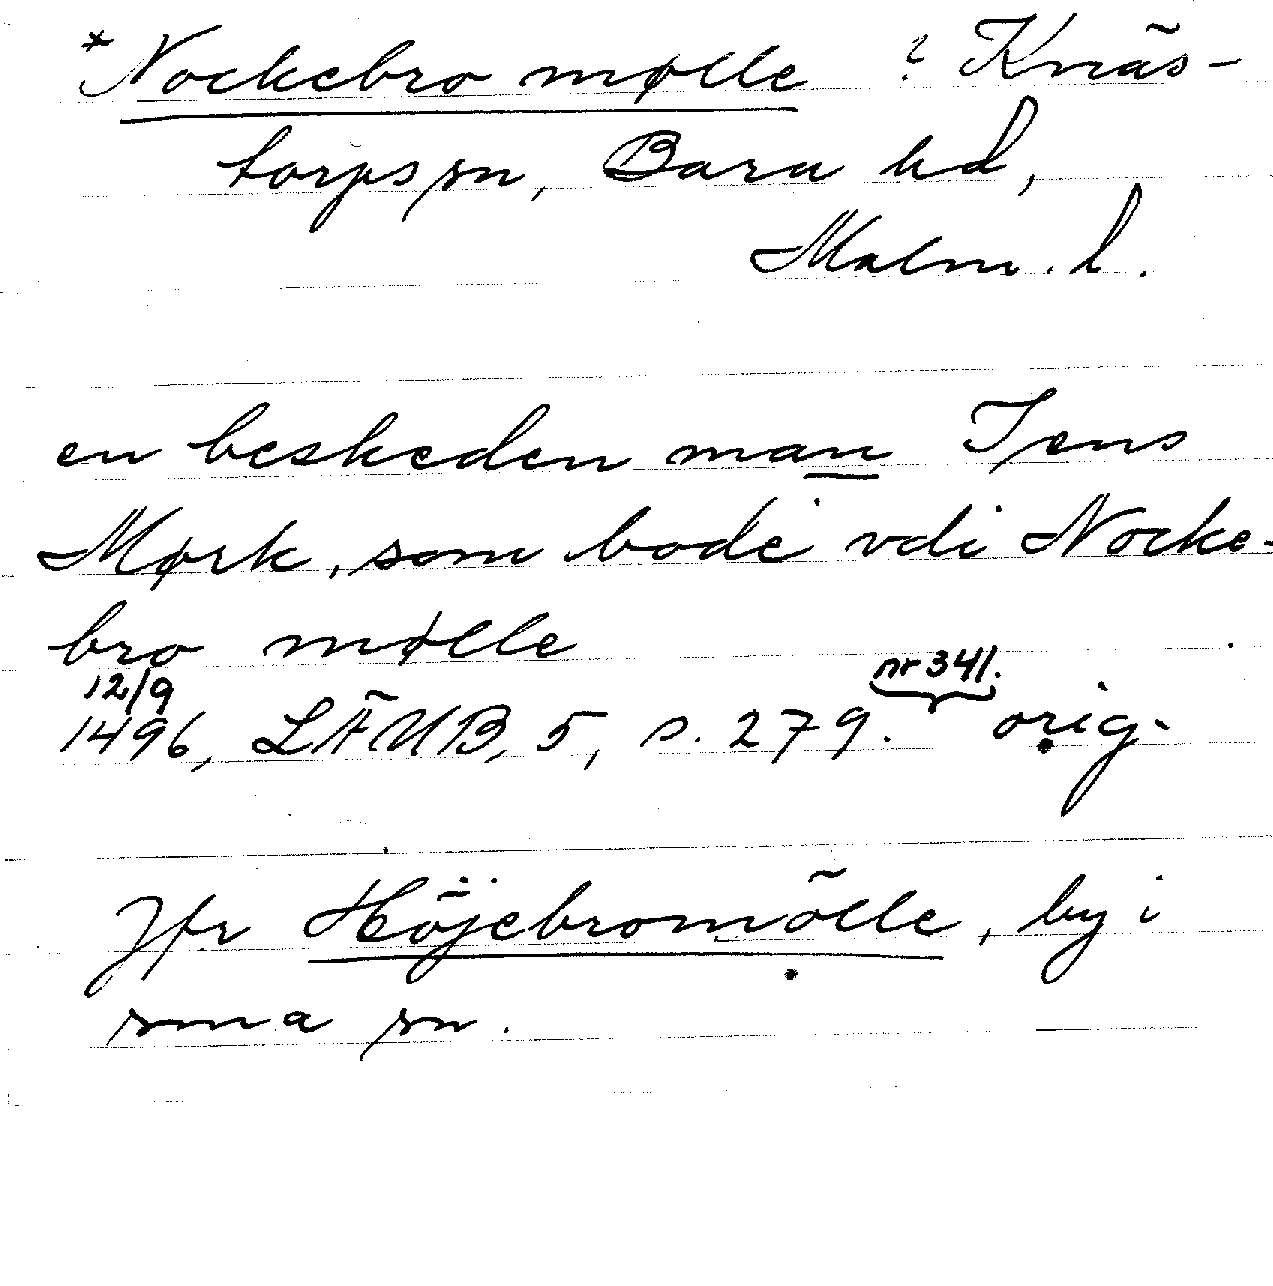 *Nockebro mølle ? Knäs-
torps sn, Bara hd,
Malm. l.
en beskeden man Jens
Mørk, som bode vdi Nocke-
bro mølle
12/9 nr 341.
1496, LÄUB, 5, s. 279. orig.
Jfr Höjebromölle, by i
sma sn.